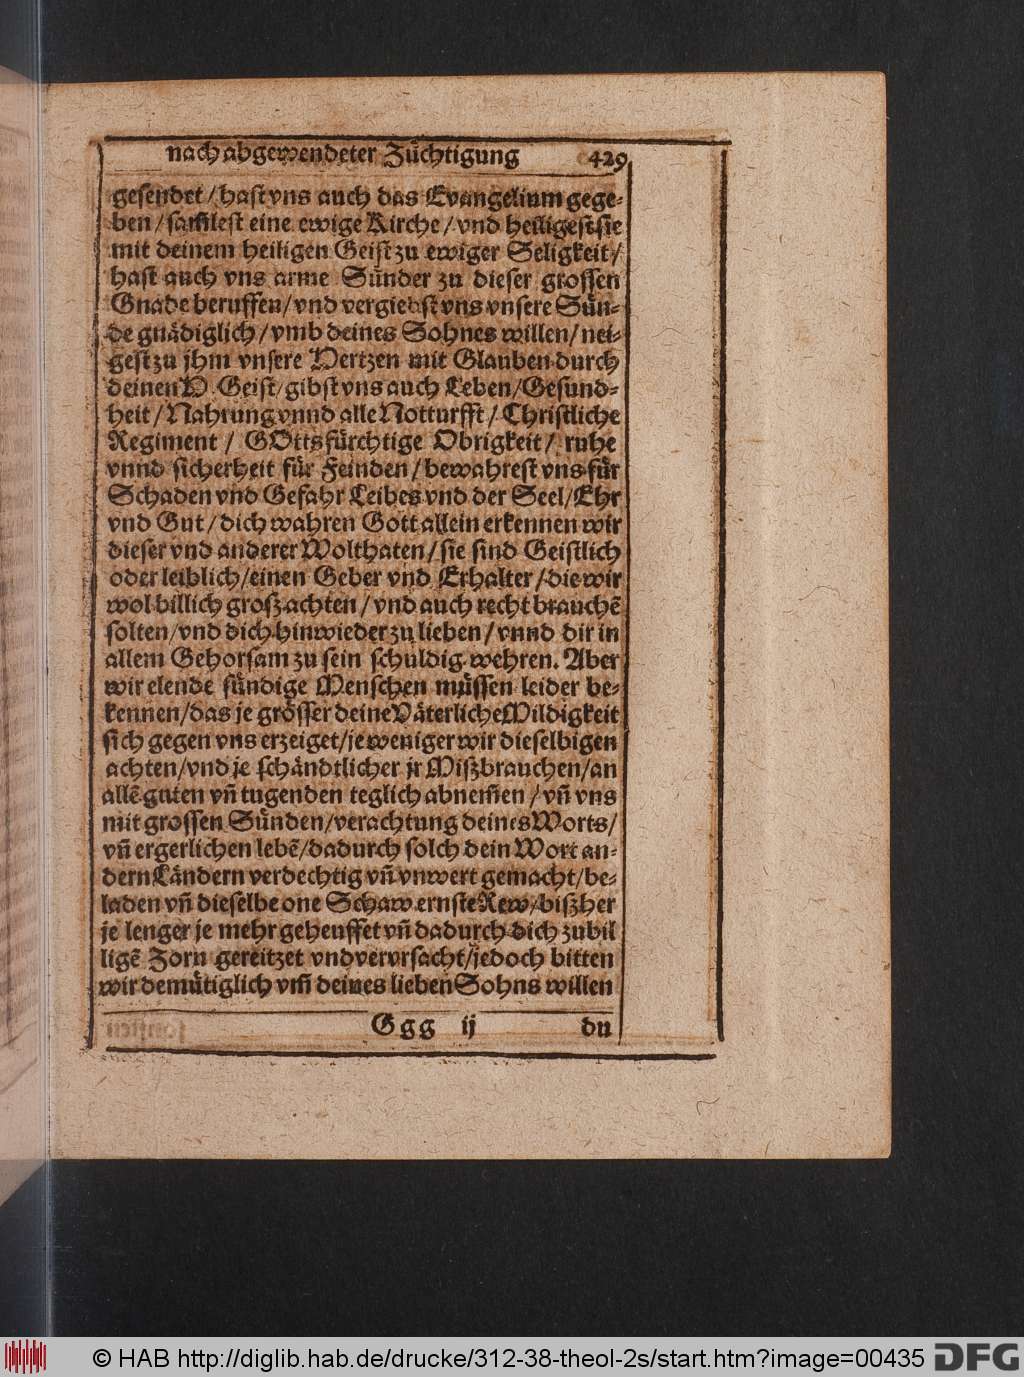 nach abgewendeter Züchtigung 429
gesendet / hast vns auch das Evangelium gege-
ben / sam̃lest eine ewige Kirche / vnd heiligest sie
mit deinem heiligen Geist zu ewiger Seligkeit /
hast auch vns arme Sünder zu dieser grossen
Gnade beruffen / vnd vergiebst vns vnsere Sün-
de gnädiglich / vmb deines Sohnes willen / nei-
gest zu jhm vnsere Hertzen mit Glauben durch
deinen H. Geist / gibst vns auch Leben / Gesund-
heit / Nahrung vnnd alle Notturfft / Christliche
Regiment / GOttsfürchtige Obrigkeit / ruhe
vnnd sicherheit für Feinden / bewahrest vns für
Schaden vnd Gefahr Leibes vnd der Seel / Ehr
vnd Gut / dich wahren Gott allein erkennen wir
dieser vnd anderer Wolthaten / sie sind Geistlich
oder leiblich / einen Geber vnd Erhalter / die wir
wol billich groß achten / vnd auch recht brauchẽ
solten / vnd dich hinwieder zu lieben / vnnd dir in
allem Gehorsam zu sein schuldig wehren. Aber
wir elende sündige Menschen müssen leider be-
kennen / das je grösser deine Väterliche Mildigkeit
sich gegen vns erzeiget / je weniger wir dieselbigen
achten / vnd je schändtlicher jr Mißbrauchen / an
allẽ guten vñ tugenden teglich abnem̃en / vñ vns
mit grossen Sünden / verachtung deines Worts /
vñ ergerlichen lebẽ / dadurch solch dein Wort an-
dern Ländern verdechtig vñ vnwert gemacht / be-
laden vñ dieselbe one Schaw ernste Rew / bißher
je lenger je mehr geheuffet vñ dadurch dich zu bil
ligẽ Zorn gereitzet vnd vervrsacht / jedoch bitten
wir demütiglich vm̃ deines lieben Sohns willen
Ggg ij du
© HAB http://diglib.hab.de/drucke/312-38-theol-2s/start.htm?image=00435 DFG